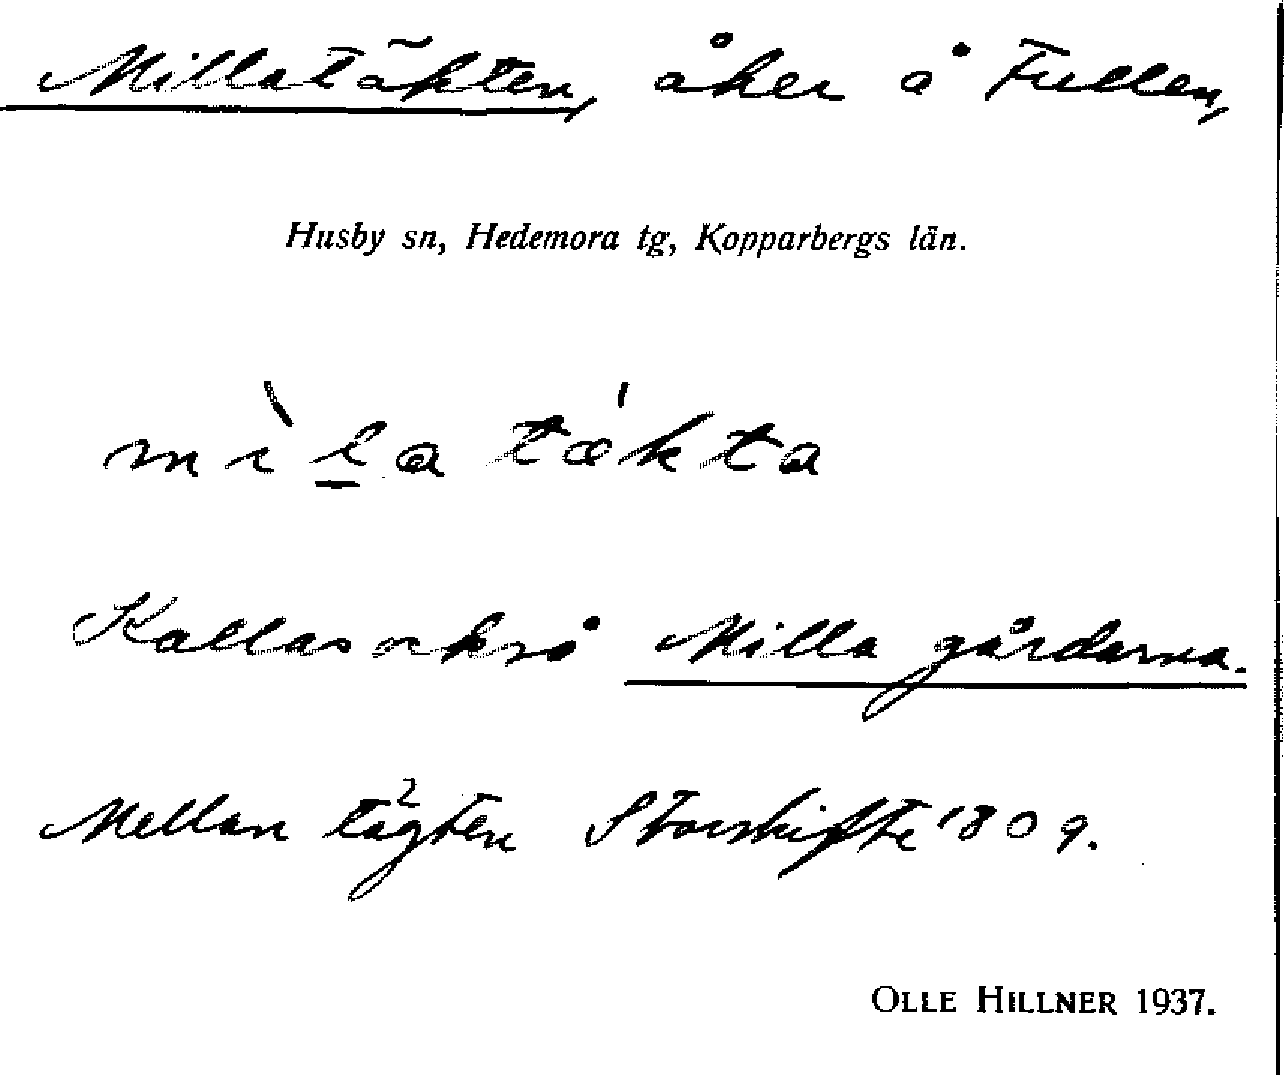 Millatäkten, åker å Fullen,
Husby sn, Hedemora tg, Kopparbergs län.
mìla tǽkta
Kallas också Milla gårdarna.
Mellan tägten Storskifte 1809.
OLLE HILLNER 1937.